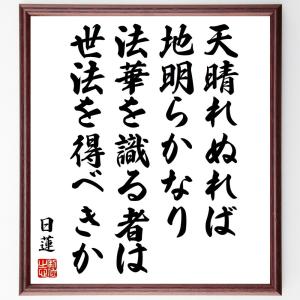 天晴れぬれば
地明らかなり
法華を識る者は
世法を得べきか
日蓮